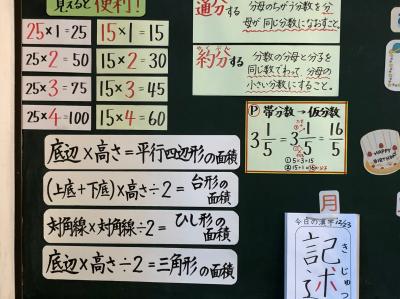 見えると便利!
25×1=25
25×2=50
25×3=75
25×4=100
15×1=15
15×2=30
15×3=45
15×4=60
通分する
分母のちがう分数を分
母が同じ分数になおすこと。
約分する
やくぶん
分数の分母と分子を
同じ数でわって、分母の
小さい分数にすること。
Ⓟ 帯分数→仮分数
3 1/5 = 3 1/5 = 16/5
①5×3=15
底辺×高さ=平行四辺形の面積
(上底+下底)×高さ÷2=台形の面積
対角線×対角線÷2=ひし形の面積
底辺×高さ÷2=三角形の面積
HAPPY
BIRTHDAY
月
今日の漢字 12/23
記述
きじゅつ